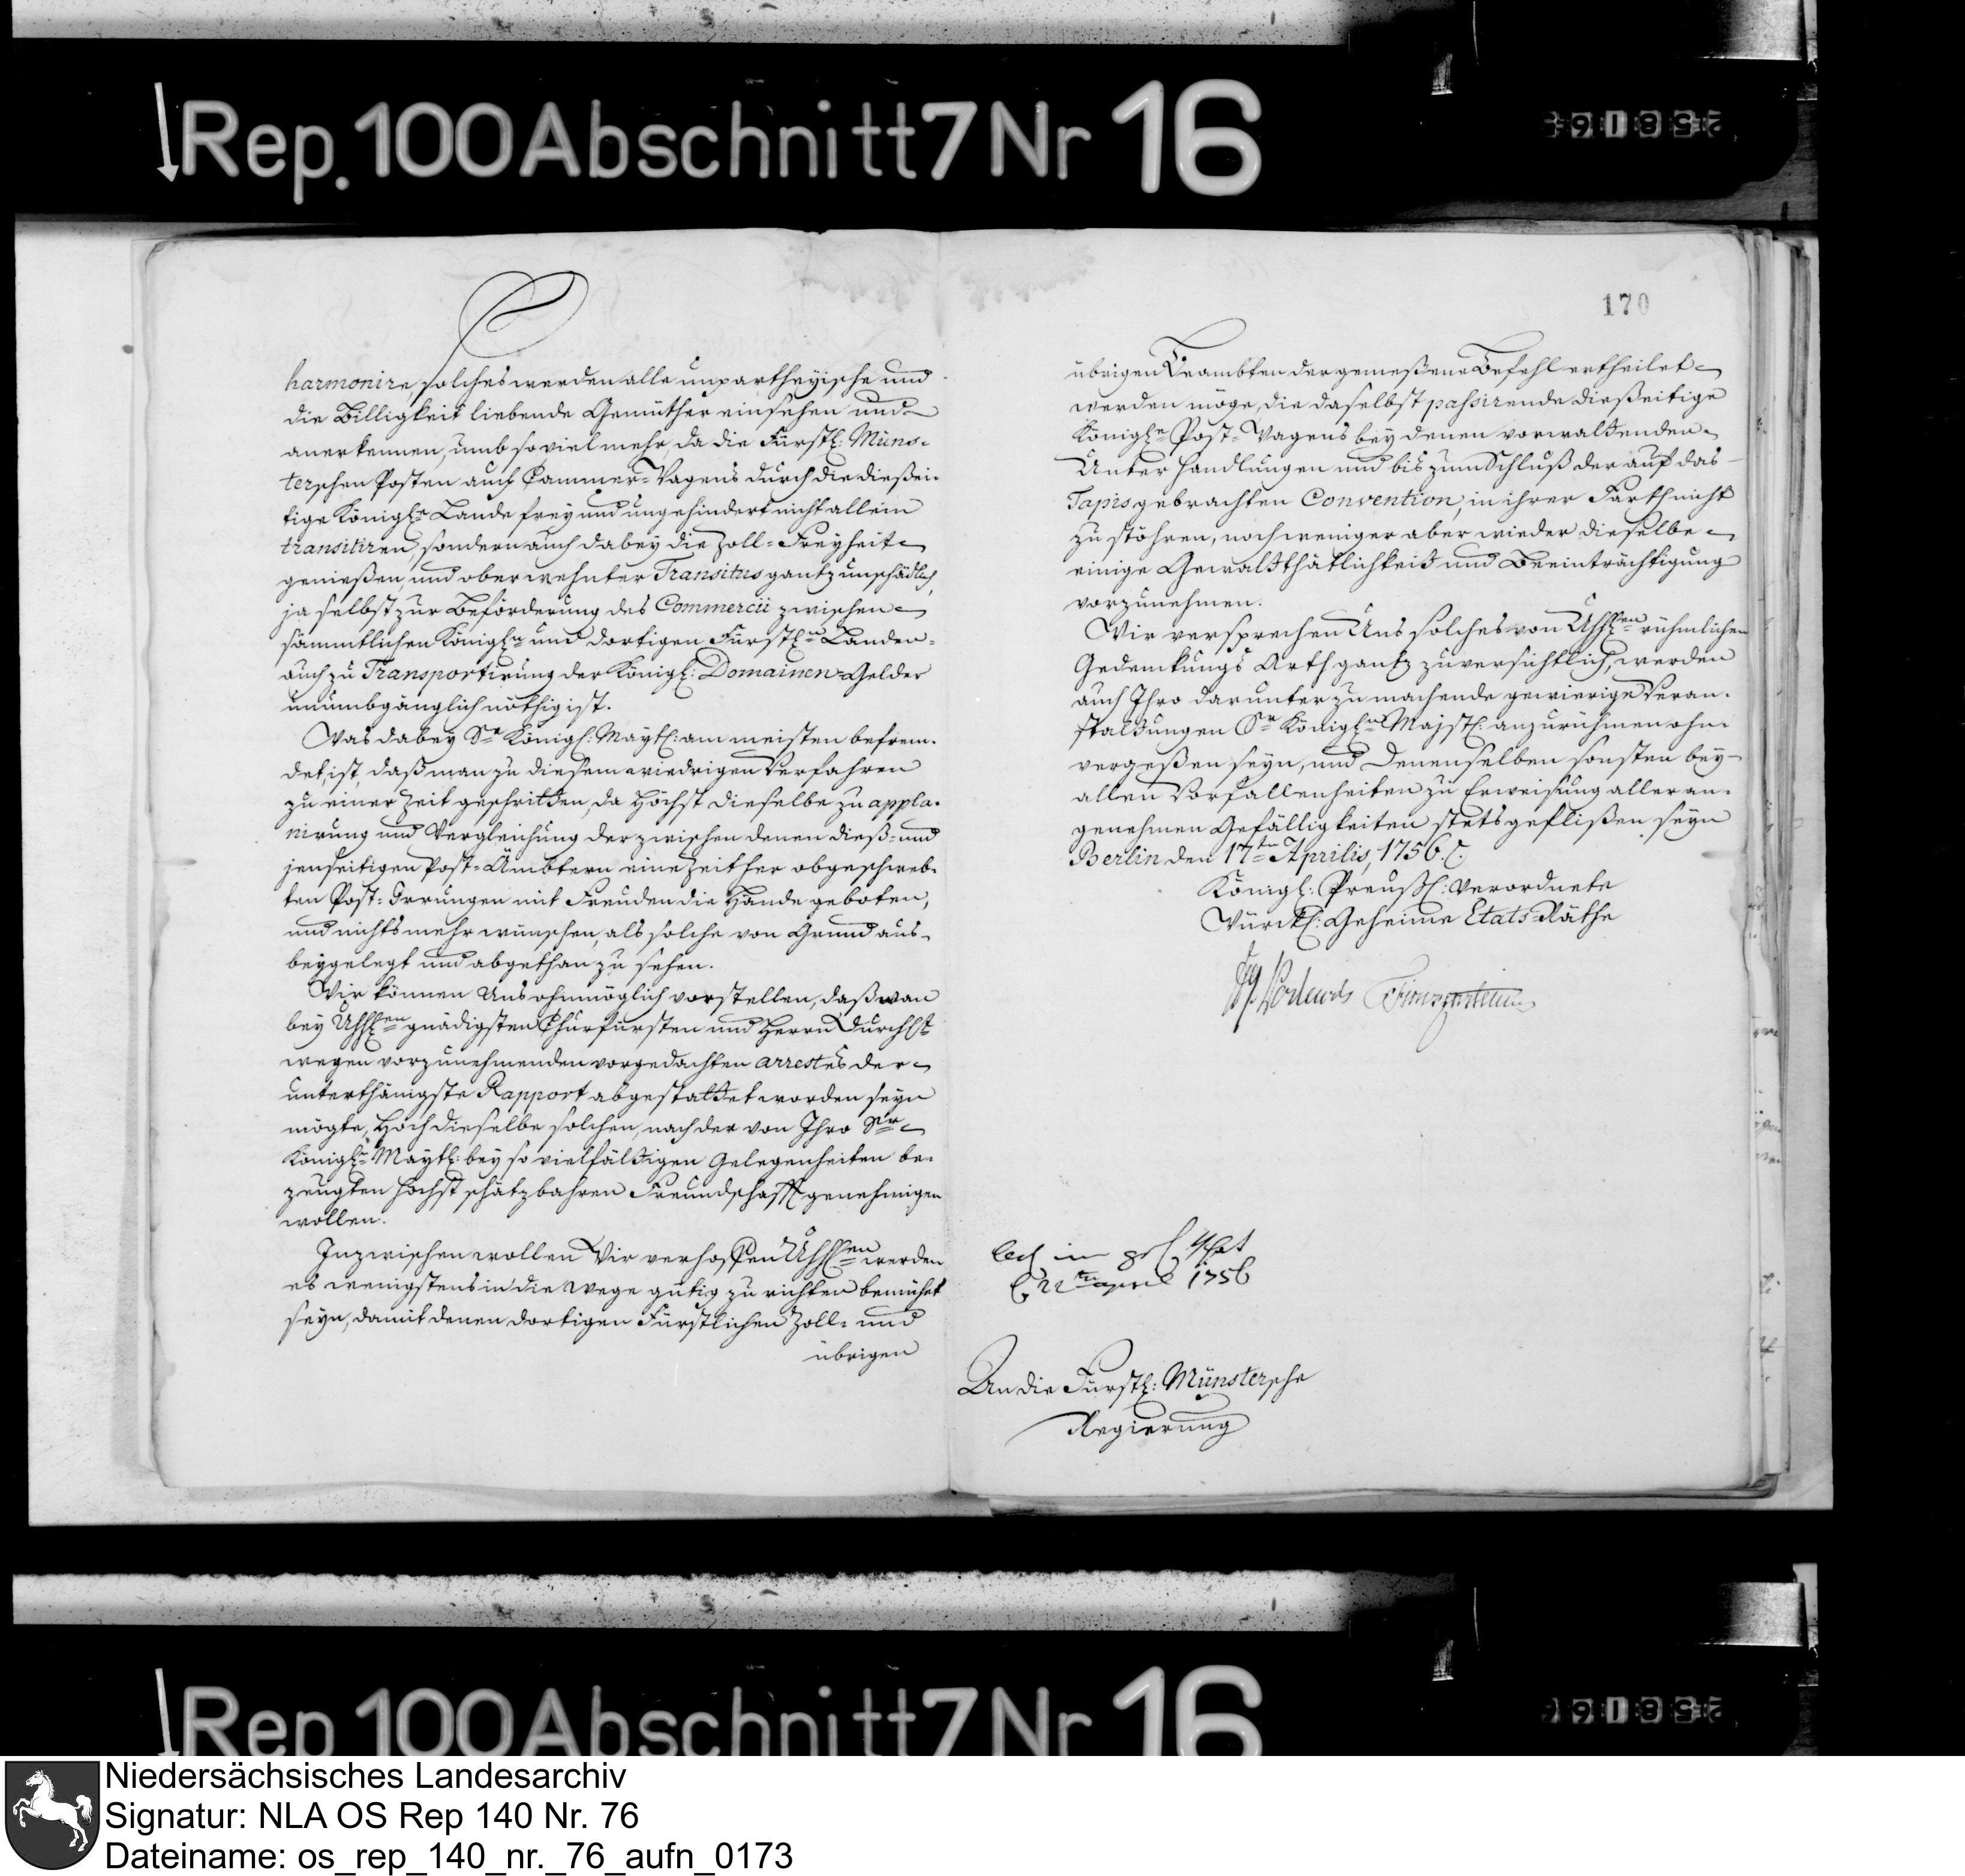 Rep. 100 Abschnitt 7 Nr 16
harmonire solches werden alle unpartheyische und
die Billigkeit liebende Gemüther einsehen und
anerkennen, umb so viel mehr, da die Fürstl: Müns-
terschen Posten auch Cammer-Wagens durch die dießei-
tige Königl. Lande frey und ungehindert nicht allein
transitiren, sondern auch dabey die Zoll-Freyheit
genießen, und oberwehnter Transitus gantz unschädlich,
ja selbst zur Beförderung des Commercii zwischen
sämmtlichen Königl.n und dortigen Fürstl.n Landen-
auch zu Transportirung der Königl: Domainen-Gelder
unumbgänglich nöthig ist.
Was dabey Sr Königl: Maytt: am meisten befrem-
det, ist, daß man zu diesem wiedrigen Verfahren
zu einer Zeit geschritten, da Höchst dieselbe zu appla-
nirung und Vergleichung der zwischen denen dieß- und
jenseitigen Post-Ämbtern eine Zeit her obgeschweb-
ten Post-Irrungen mit Freuden die Hände geboten,
und nichts mehr wünschen, als solche von Grund aus
beygelegt und abgethan zu sehen.
Wir können Uns ohnmöglich vorstellen, daß wan
bey gnädigsten Churfürsten und Herrn Durchlt
wegen vorzunehmenden vorgedachten arrestes der
unterthänigste Rapport abgestattet worden seyn
mögte, Hoch dieselbe solchen, nach der von Ihro Sr
Königl. Maytt: bey so vielfältigen Gelegenheiten be-
zeugten höchst schätzbahren Freundschafft genehmigen
wollen.
Inzwischen wollen Wir verhoffen werden
es wenigstens in die Wege gütig zu richten bemühet
seyn, damit denen dortigen Fürstlichen Zoll- und
übrigen
170
übrigen Beambten der gemeßene Befehl ertheilet
werden möge, die daselbst passirende dießeitige
Königl.e Post-Wagens bey denen vorwaltenden
Unterhandlungen und bis zum Schluß der auf das
Tapis gebrachten Convention, in ihrer Farth nicht
zu stöhren, noch weniger aber wieder dieselbe
einige Gewaltthätlichkeit und Beeinträchtigung
vorzunehmen.
Wir versprechen Uns solches von rühmlichen
Gedenkungs Arth gantz zuversichtlich, werden
auch Ihro darunter zu machende gewierige Veran-
staltungen Sr Königl.n Majst: anzurühmen ohn-
vergeßen seyn, und Denenselben sonsten bey
allen Vorfallenheiten zu Erweisung aller an-
genehmen Gefälligkeiten stets geflißen seyn
Berlin den 17ten Aprilis, 1756.
Königl: Preußl: verordnete
Würckl: Geheime Etats-Räthe
Podewils Finckenstein
22ten april 1756
An die Fürstl: Münstersche
Regierung
Rep 100 Abschnitt 7 Nr 16
Niedersächsisches Landesarchiv
Signatur: NLA OS Rep 140 Nr. 76
Dateiname: os_rep_140_nr._76_aufn_0173